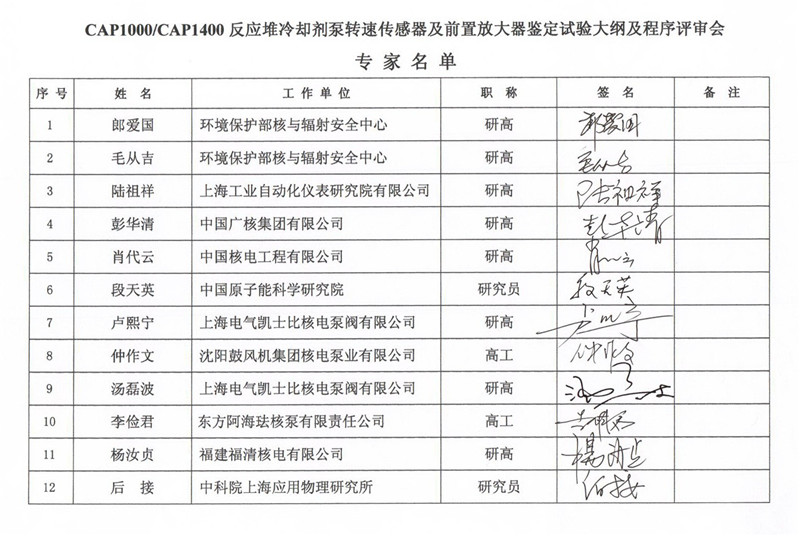 CAP1000/CAP1400 反应堆冷却剂泵转速传感器及前置放大器鉴定试验大纲及程序评审会
专家名单
序号 姓名 工作单位 职称 签名 备注
1 郎爱国 环境保护部核与辐射安全中心 研高 郎爱国
2 毛从吉 环境保护部核与辐射安全中心 研高 毛从吉
3 陆祖祥 上海工业自动化仪表研究院有限公司 研高 陆祖祥
4 彭华清 中国广核集团有限公司 研高 彭华清
5 肖代云 中国核电工程有限公司 研高 肖代云
6 段天英 中国原子能科学研究院 研究员 段天英
7 卢熙宁 上海电气凯士比核电泵阀有限公司 研高
8 仲作文 沈阳鼓风机集团核电泵业有限公司 高工
9 汤磊波 上海电气凯士比核电泵阀有限公司 研高
10 李俭君 东方阿海珐核泵有限责任公司 高工
11 杨汝贞 福建福清核电有限公司 研高
12 后接 中科院上海应用物理研究所 研究员 后接